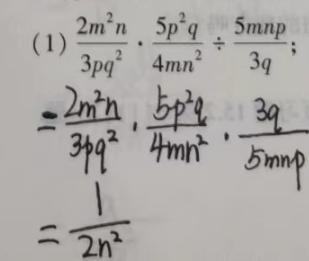 (1) \frac{2m^2n}{3pq^2} · \frac{5p^2q}{4mn^2} ÷ \frac{5mnp}{3q};
= \frac{2m^2n}{3pq^2} · \frac{5p^2q}{4mn^2} · \frac{3q}{5mnp}
= \frac{1}{2n^2}